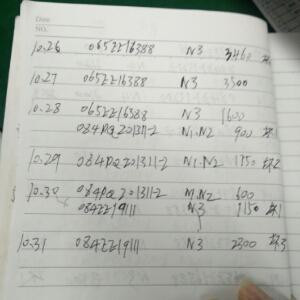 Date
NO.
10.26 0652216388 N3 3460
10.27 0652216388 N3 3300
10.28 0652216388 N3 1600
084PQ201311-2 N1.N2 900
10.29 084PQ201311-2 N1.N2 1150
10.30 084PQ201311-2 N1.N2 600
0842219111 N3 1150
10.31 0842219111 N3 2300